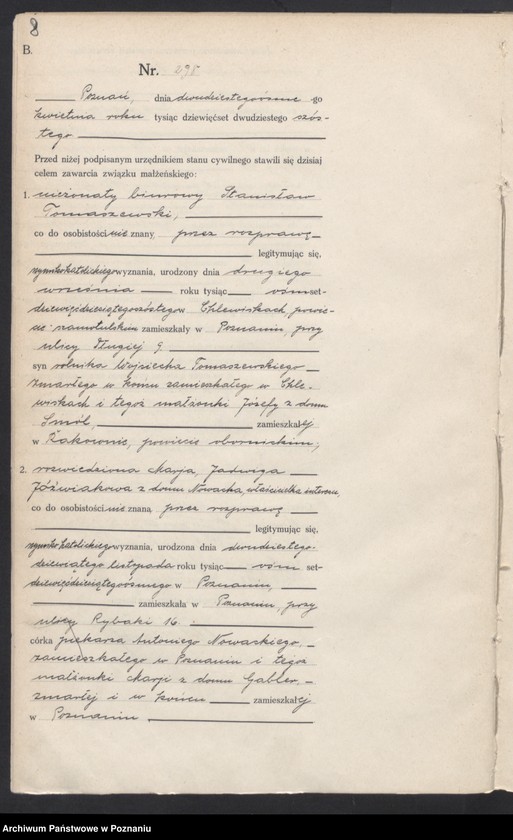 8
B.
Nr. 298
Poznań, dnia dwudziestegoósme go
kwietnia roku tysiąc dziewięćset dwudziestego szós-
tego
Przed niżej podpisanym urzędnikiem stanu cywilnego stawili się dzisiaj
celem zawarcia związku małżeńskiego:
1. nieżonaty biurowy Stanisław
Tomaszewski,
co do osobistości nie znany przez rozprawę
legitymując się,
rzymskokatolickiego wyznania, urodzony dnia drugiego
września roku tysiąc ośmset-
dziewięćdziesiątegoszóstego w Chlewiskach powie-
cie szamotulskim zamieszkały w Poznaniu, przy
ulicy Długiej 9
syn rolnika Wojciecha Tomaszewskiego
zmarłego w końcu zamieszkałego w Chle-
wiskach i tegoż małżonki Józefy z domu
Smól, zamieszkałej
w Żukowie, powiecie obornickim,
2. rozwiedziona Marja, Jadwiga
Jóźwiakowa z domu Nowacka, właścicielka interesu,
co do osobistości nie znana przez rozprawę
legitymując się,
rzymskokatolickiego wyznania, urodzona dnia dwudziestego-
dziewiątego listopada roku tysiąc ośm set-
dziewięćdziesiątegoósmego w Poznaniu,
zamieszkała w Poznaniu, przy
ulicy Rybaki 16.
córka piekarza Antoniego Nowackiego,
zamieszkałego w Poznaniu i tegoż
małżonki Marji z domu Gabler,
zmarłej i w końcu zamieszkałej
w Poznaniu
Archiwum Państwowe w Poznaniu